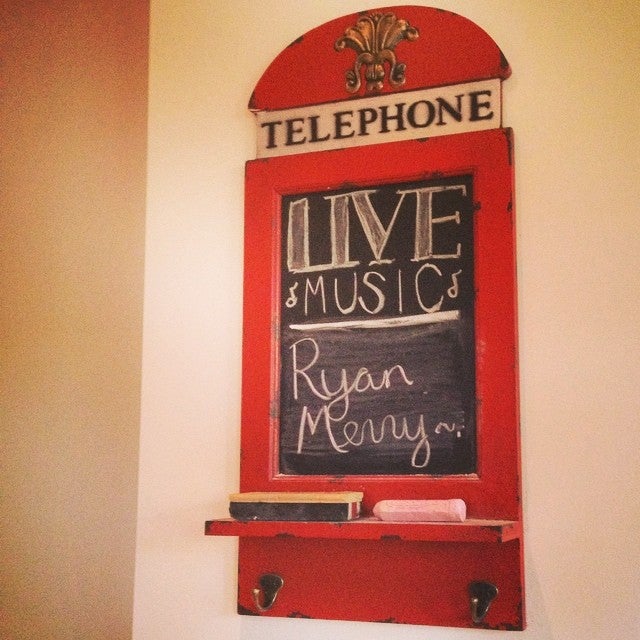 TELEPHONE
LIVE
MUSIC
Ryan
Merry